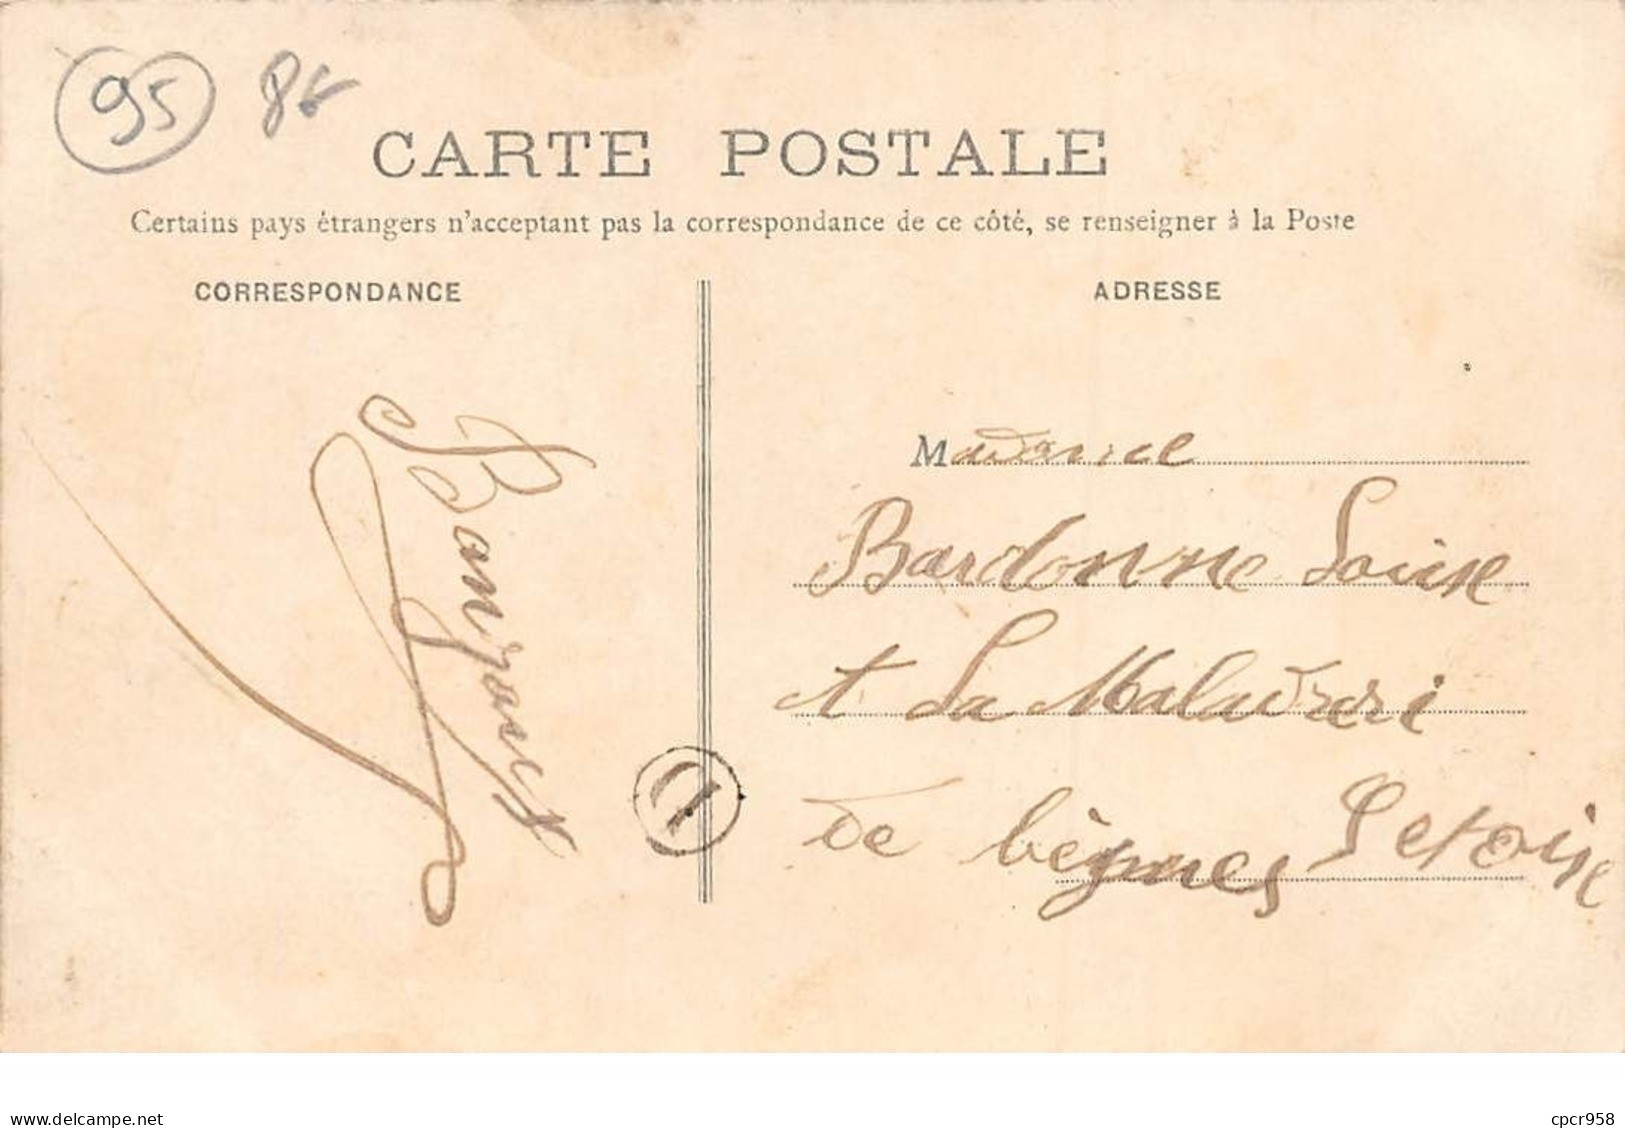 95 8€
CARTE POSTALE
Certains pays étrangers n'acceptant pas la correspondance de ce côté, se renseigner à la Poste
CORRESPONDANCE
ADRESSE
Madame
Bardonne Louise
A La Maladreri
de bègnes Setoise
D
www.delcampe.net
cpcr958